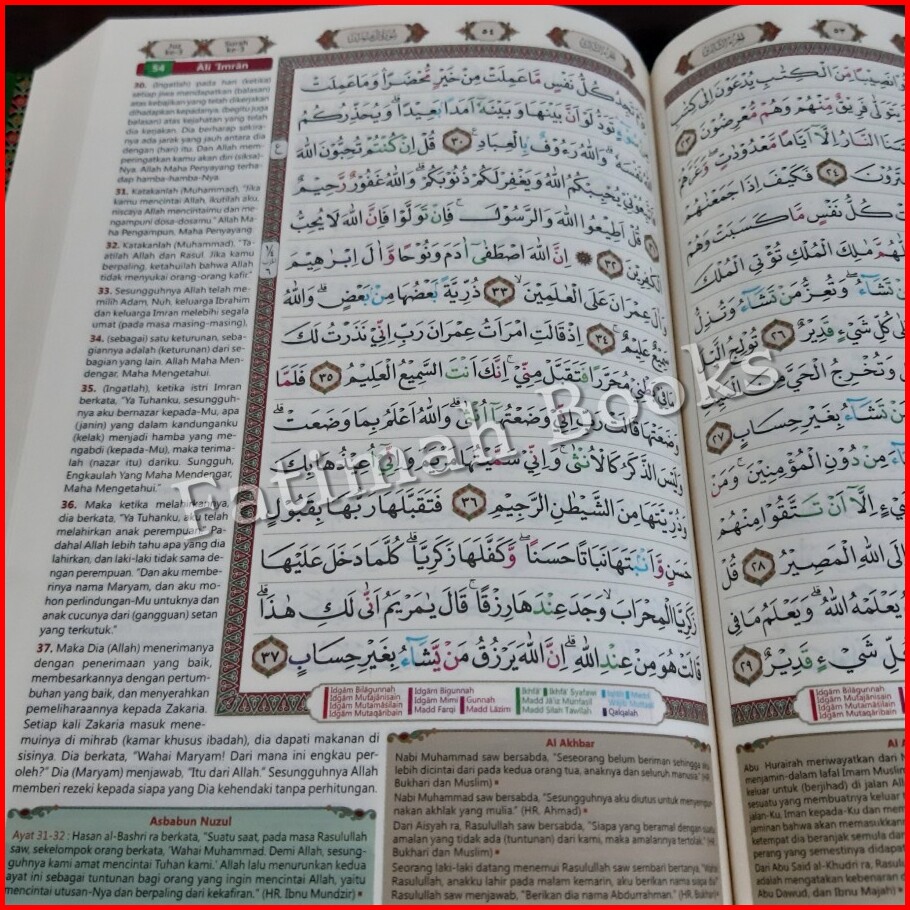 Juz
ke-3
Surah
ke-3
٥٤
54
Ali 'Imrān
30. (Ingatlah) pada hari (ketika)
setiap jiwa mendapatkan (balasan)
atas kebajikan yang telah dikerjakan
dihadapkan kepadanya, (begitu juga
balasan) atas kejahatan yang telah
dia kerjakan. Dia berharap sekira-
nya ada jarak yang jauh antara dia
dengan (hari) itu. Dan Allah mem-
peringatkan kamu akan diri (siksa)-
Nya. Allah Maha Penyayang terha-
dap hamba-hamba-Nya.
31. Katakanlah (Muhammad), "Jika
kamu mencintai Allah, ikutilah aku,
niscaya Allah mencintaimu dan me-
ngampuni dosa-dosamu." Allah Ma-
ha Pengampun, Maha Penyayang.
32. Katakanlah (Muhammad), "Ta-
atilah Allah dan Rasul. Jika kamu
berpaling, ketahuilah bahwa Allah
tidak menyukai orang-orang kafir."
33. Sesungguhnya Allah telah me-
milih Adam, Nuh, keluarga Ibrahim
dan keluarga Imran melebihi segala
umat (pada masa masing-masing),
34. (sebagai) satu keturunan, seba-
giannya adalah (keturunan) dari se-
bagian yang lain. Allah Maha Men-
dengar, Maha Mengetahui.
35. (Ingatlah), ketika istri Imran
berkata, "Ya Tuhanku, sesungguh-
nya aku bernazar kepada-Mu, apa
(janin) yang dalam kandunganku
(kelak) menjadi hamba yang me-
ngabdi (kepada-Mu), maka terima-
lah (nazar itu) dariku. Sungguh,
Engkaulah Yang Maha Mendengar,
Maha Mengetahui."
36. Maka ketika melahirkannya,
dia berkata, "Ya Tuhanku, aku telah
melahirkan anak perempuan." Pa-
dahal Allah lebih tahu apa yang dia
lahirkan, dan laki-laki tidak sama de-
ngan perempuan. "Dan aku membe-
rinya nama Maryam, dan aku mo-
hon perlindungan-Mu untuknya dan
anak cucunya dari (gangguan) setan
yang terkutuk."
37. Maka Dia (Allah) menerimanya
dengan penerimaan yang baik,
membesarkannya dengan pertum-
buhan yang baik, dan menyerahkan
pemeliharaannya kepada Zakaria.
Setiap kali Zakaria masuk mene-
muinya di mihrab (kamar khusus ibadah), dia dapati makanan di
sisinya. Dia berkata, "Wahai Maryam! Dari mana ini engkau per-
oleh?" Dia (Maryam) menjawab, "Itu dari Allah." Sesungguhnya Allah
memberi rezeki kepada siapa yang Dia kehendaki tanpa perhitungan.
كُلُّ نَفْسٍ مَّا عَمِلَتْ مِنْ خَيْرٍ مُّحْضَرًا وَمَا عَمِلَتْ
تَوَدُّ لَوْ اَنَّ بَيْنَهَا وَبَيْنَهٗٓ اَمَدًاۢ بَعِيْدًاۗ وَيُحَذِّرُكُمُ
اللّٰهُ نَفْسَهٗۗ وَاللّٰهُ رَءُوْفٌۢ بِالْعِبَادِ ۝٣٠ قُلْ اِنْ كُنْتُمْ تُحِبُّوْنَ اللّٰهَ
فَاتَّبِعُوْنِيْ يُحْبِبْكُمُ اللّٰهُ وَيَغْفِرْ لَكُمْ ذُنُوْبَكُمْۗ وَاللّٰهُ غَفُوْرٌ رَّحِيْمٌ
قُلْ اَطِيْعُوا اللّٰهَ وَالرَّسُوْلَۚ فَاِنْ تَوَلَّوْا فَاِنَّ اللّٰهَ لَا يُحِبُّ
الْكٰفِرِيْنَ ۝٣٢ اِنَّ اللّٰهَ اصْطَفٰٓى اٰدَمَ وَنُوْحًا وَّاٰلَ اِبْرٰهِيْمَ
وَاٰلَ عِمْرَانَ عَلَى الْعٰلَمِيْنَۙ ۝٣٣ ذُرِّيَّةًۢ بَعْضُهَا مِنْۢ بَعْضٍۗ وَاللّٰهُ
سَمِيْعٌ عَلِيْمٌۚ ۝٣٤ اِذْ قَالَتِ امْرَاَتُ عِمْرٰنَ رَبِّ اِنِّيْ نَذَرْتُ لَكَ
مَا فِيْ بَطْنِيْ مُحَرَّرًا فَتَقَبَّلْ مِنِّيْۚ اِنَّكَ اَنْتَ السَّمِيْعُ الْعَلِيْمُ ۝٣٥ فَلَمَّا
وَضَعَتْهَا قَالَتْ رَبِّ اِنِّيْ وَضَعْتُهَآ اُنْثٰىۗ وَاللّٰهُ اَعْلَمُ بِمَا وَضَعَتْۗ
وَلَيْسَ الذَّكَرُ كَالْاُنْثٰىۚ وَاِنِّيْ سَمَّيْتُهَا مَرْيَمَ وَاِنِّيْٓ اُعِيْذُهَا بِكَ
وَذُرِّيَّتَهَا مِنَ الشَّيْطٰنِ الرَّجِيْمِ ۝٣٦ فَتَقَبَّلَهَا رَبُّهَا بِقَبُوْلٍ
حَسَنٍ وَّاَنْۢبَتَهَا نَبَاتًا حَسَنًاۖ وَّكَفَّلَهَا زَكَرِيَّاۗ كُلَّمَا دَخَلَ عَلَيْهَا
زَكَرِيَّا الْمِحْرَابَۙ وَجَدَ عِنْدَهَا رِزْقًاۚ قَالَ يٰمَرْيَمُ اَنّٰى لَكِ هٰذَاۗ
قَالَتْ هُوَ مِنْ عِنْدِ اللّٰهِۗ اِنَّ اللّٰهَ يَرْزُقُ مَنْ يَّشَاۤءُ بِغَيْرِ حِسَابٍ ۝٣٧
Idgām Bilāgunnah
Idgām Mutajānisain
Idgām Mutamāsilain
Idgām Mutaqāribain
Idgām Bigunnah
Idgām Mimi
Gunnah
Madd Farqi
Madd Lāzim
Ikhfā'
Ikhfā' Syafawi
Madd Jā'iz Munfaṣil
Madd Ṣilah Ṭawīlah
Qalqalah
Asbabun Nuzul
Ayat 31-32 : Hasan al-Bashri ra berkata, "Suatu saat, pada masa Rasulullah
saw, sekelompok orang berkata, 'Wahai Muhammad. Demi Allah, sesung-
guhnya kami amat mencintai Tuhan kami.' Allah lalu menurunkan kedua
ayat ini sebagai tuntunan bagi orang yang ingin mencintai Allah, yaitu
mencintai utusan-Nya dan berpaling dari kekafiran." (HR. Ibnu Mundzir)
Al Akhbar
Nabi Muhammad saw bersabda, "Seseorang belum beriman sehingga
lebih dicintai dari pada kedua orang tua, anaknya dan seluruh manusia." (HR.
Bukhari dan Muslim)
Nabi Muhammad saw bersabda, "Sesungguhnya aku diutus untuk menyempur-
nakan akhlak yang mulia." (HR. Ahmad)
Dari Aisyah ra, Rasulullah saw bersabda, "Siapa yang beramal dengan
amalan yang tidak ada (tuntunan) dari kami, maka amalannya tertolak." (HR.
Bukhari dan Muslim)
Seorang laki-laki datang menemui Rasulullah saw sembari bertanya,
Rasulullah, anakku lahir pada malam kemarin, aku berikan nama siapa
Rasulullah saw menjawab, "Berikan dia nama Abdurrahman." (HR.
Bukhari dan Muslim)
٥٣
نَصِيْبًا مِّنَ الْكِتٰبِ يُدْعَوْنَ اِلٰى
يَتَوَلّٰى فَرِيْقٌ مِّنْهُمْ وَهُمْ مُّعْرِضُوْنَ ۝٢٣
النَّارُ اِلَّآ اَيَّامًا مَّعْدُوْدٰتٍۖ وَّغَرَّهُمْ
۝٢٤ فَكَيْفَ اِذَا جَمَعْنٰهُمْ
كُلُّ نَفْسٍ مَّا كَسَبَتْ وَهُمْ
مٰلِكَ الْمُلْكِ تُؤْتِى الْمُلْكَ
تَشَاۤءُۖ وَتُعِزُّ مَنْ تَشَاۤءُ وَتُذِلُّ
كُلِّ شَيْءٍ قَدِيْرٌ ۝٢٦ تُوْلِجُ الَّيْلَ
وَتُخْرِجُ الْحَيَّ
تَشَاۤءُ بِغَيْرِ حِسَابٍ ۝٢٧
مِنْ دُوْنِ الْمُؤْمِنِيْنَۚ وَمَنْ
اِلَّآ اَنْ تَتَّقُوْا مِنْهُمْ
اللّٰهِ الْمَصِيْرُ ۝٢٨ قُلْ
يَعْلَمْهُ اللّٰهُۗ وَيَعْلَمُ مَا فِى
شَيْءٍ قَدِيْرٌ ۝٢٩
Idgām Bilāgunnah
Idgām Mutajānisain
Idgām Mutamāsilain
Idgām Mutaqāribain
Abu Hurairah meriwayatkan dari
menjamin-dalam lafal Imam Muslim
keluar untuk (berjihad) di jalan
sesuatu yang membuatnya keluar
jalan-Ku, Iman kepada-Ku dan
jaminan bahwa akan memasukkan
ketempat dia beranjak semula
perang yang semestinya didapati
Dari Abu Said al-Khudri ra,
adalah mengatakan kebenaran
Abu Dawud, dan Ibnu Majah)
Fatimah Books